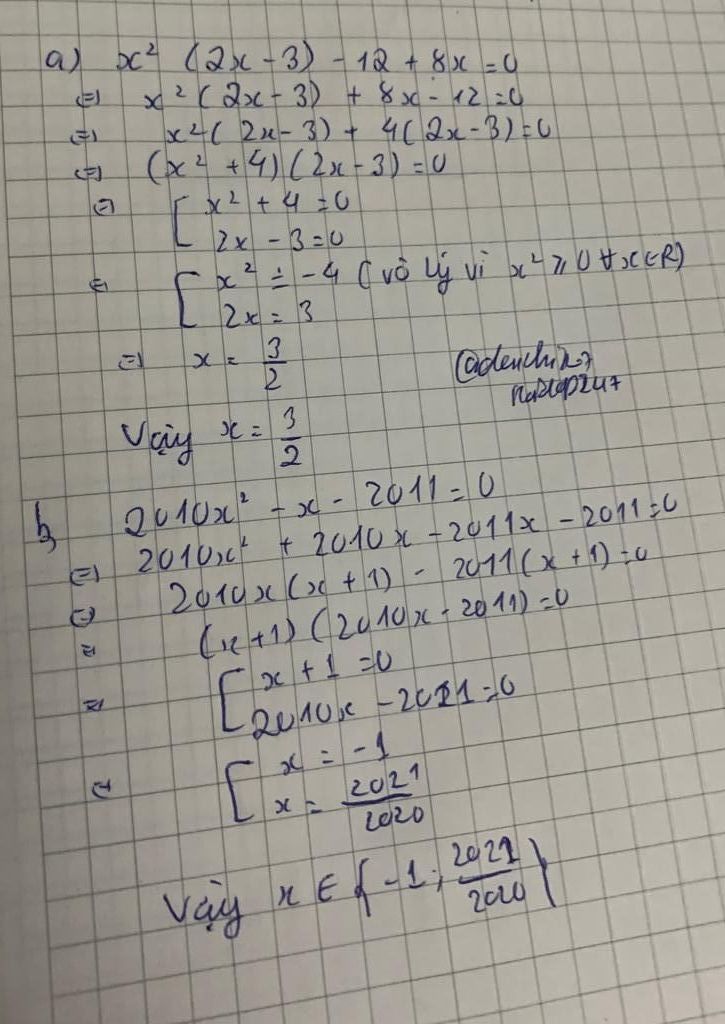 a) x² (2x - 3) - 12 + 8x = 0
⇔ x² (2x - 3) + 8x - 12 = 0
⇔ x² (2x - 3) + 4(2x - 3) = 0
⇔ (x² + 4)(2x - 3) = 0
⇔ [ x² + 4 = 0
2x - 3 = 0
⇔ [ x² = -4 (vô lý vì x² ≥ 0 ∀x∈R)
2x = 3
⇔ x = 3/2
Vậy x = 3/2
b, 2010x² - x - 2011 = 0
⇔ 2010x² + 2010x - 2011x - 2011 = 0
⇔ 2010x (x + 1) - 2011 (x + 1) = 0
⇔ (x + 1) (2010x - 2011) = 0
⇔ [ x + 1 = 0
2010x - 2021 = 0
⇔ [ x = -1
x = 2021/2020
Vậy x ∈ { -1 ; 2021/2020 }